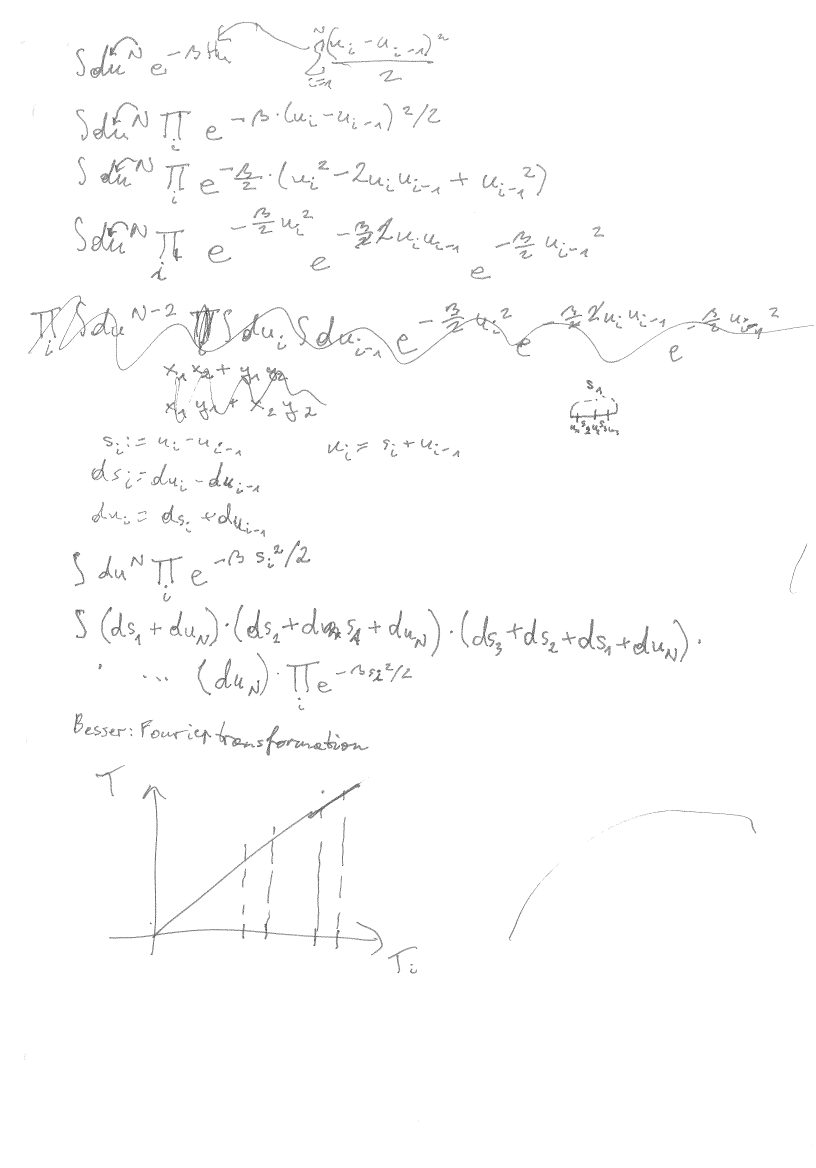 ∫ du^N e^{-βH_u} ∑_{i=1}^{N} (u_i - u_{i-1})² / 2
∫ du^N ∏_i e^{-β·(u_i - u_{i-1})²/2}
∫ du^N ∏_i e^{-β/2·(u_i² - 2u_i u_{i-1} + u_{i-1}²)}
∫ du^N ∏_i e^{-β/2 u_i²} e^{-β/2 2u_i u_{i-1}} e^{-β/2 u_{i-1}²}
∏_i ∫ du^{N-2} ∫ du_i ∫ du_{i-1} e^{-β/2 u_i²} e^{β/2 2u_i u_{i-1}} e^{-β/2 u_{i-1}²}
x_1 x_2 + y_1 y_2
x_1 y_1 + x_2 y_2
s_1
s_i := u_i - u_{i-1} u_i = s_i + u_{i-1}
ds_i = du_i - du_{i-1}
du_i = ds_i + du_{i-1}
∫ du^N ∏_i e^{-β s_i²/2}
∫ (ds_1 + du_N)·(ds_2 + ds_1 + du_N)·(ds_3 + ds_2 + ds_1 + du_N)·
· ... (du_N)·∏_i e^{-βs_i²/2}
Besser: Fouriertransformation
T
T_i